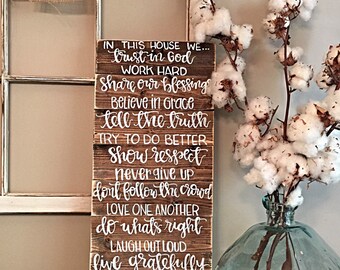 IN THIS HOUSE WE...
trust in God
WORK HARD
Share our blessings
Believe in Grace
tell the truth
TRY TO DO BETTER
Show respect
never give up
don't follow the crowd
LOVE ONE ANOTHER
do what's right
LAUGH OUT LOUD
live gratefully